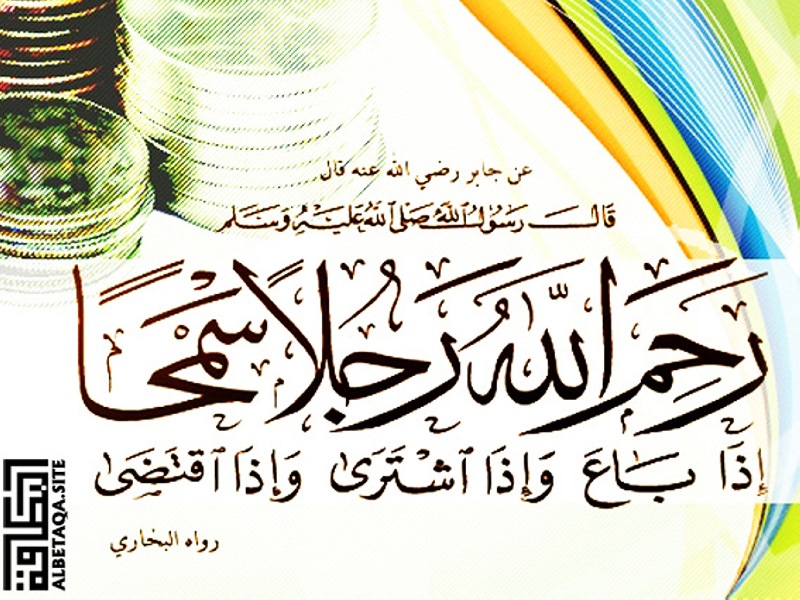 عن جابر رضي الله عنه قال
قَالَ رَسُولُ اللَّهِ صَلَّى اللَّهُ عَلَيْهِ وَسَلَّم
رَحِمَ اللَّهُ رَجُلًا سَمْحًا
إِذَا بَاعَ وَإِذَا ٱشْتَرَىٰ وَإِذَا ٱقْتَضَىٰ
رواه البخاري
البطاقة
ALBETAQA.SITE